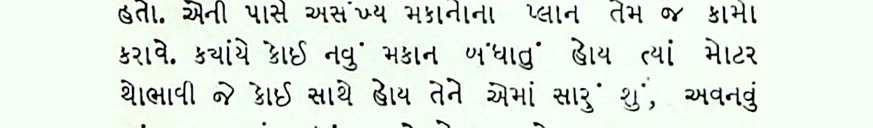 હતો. એની પાસે અસંખ્ય મકાનોના પ્લાન તેમ જ કામો
કરાવે. કયાંયે કોઈ નવું મકાન બંધાતું હોય ત્યાં મોટર
થોભાવી જે કોઈ સાથે હોય તેને એમાં સારું શું, અવનવું